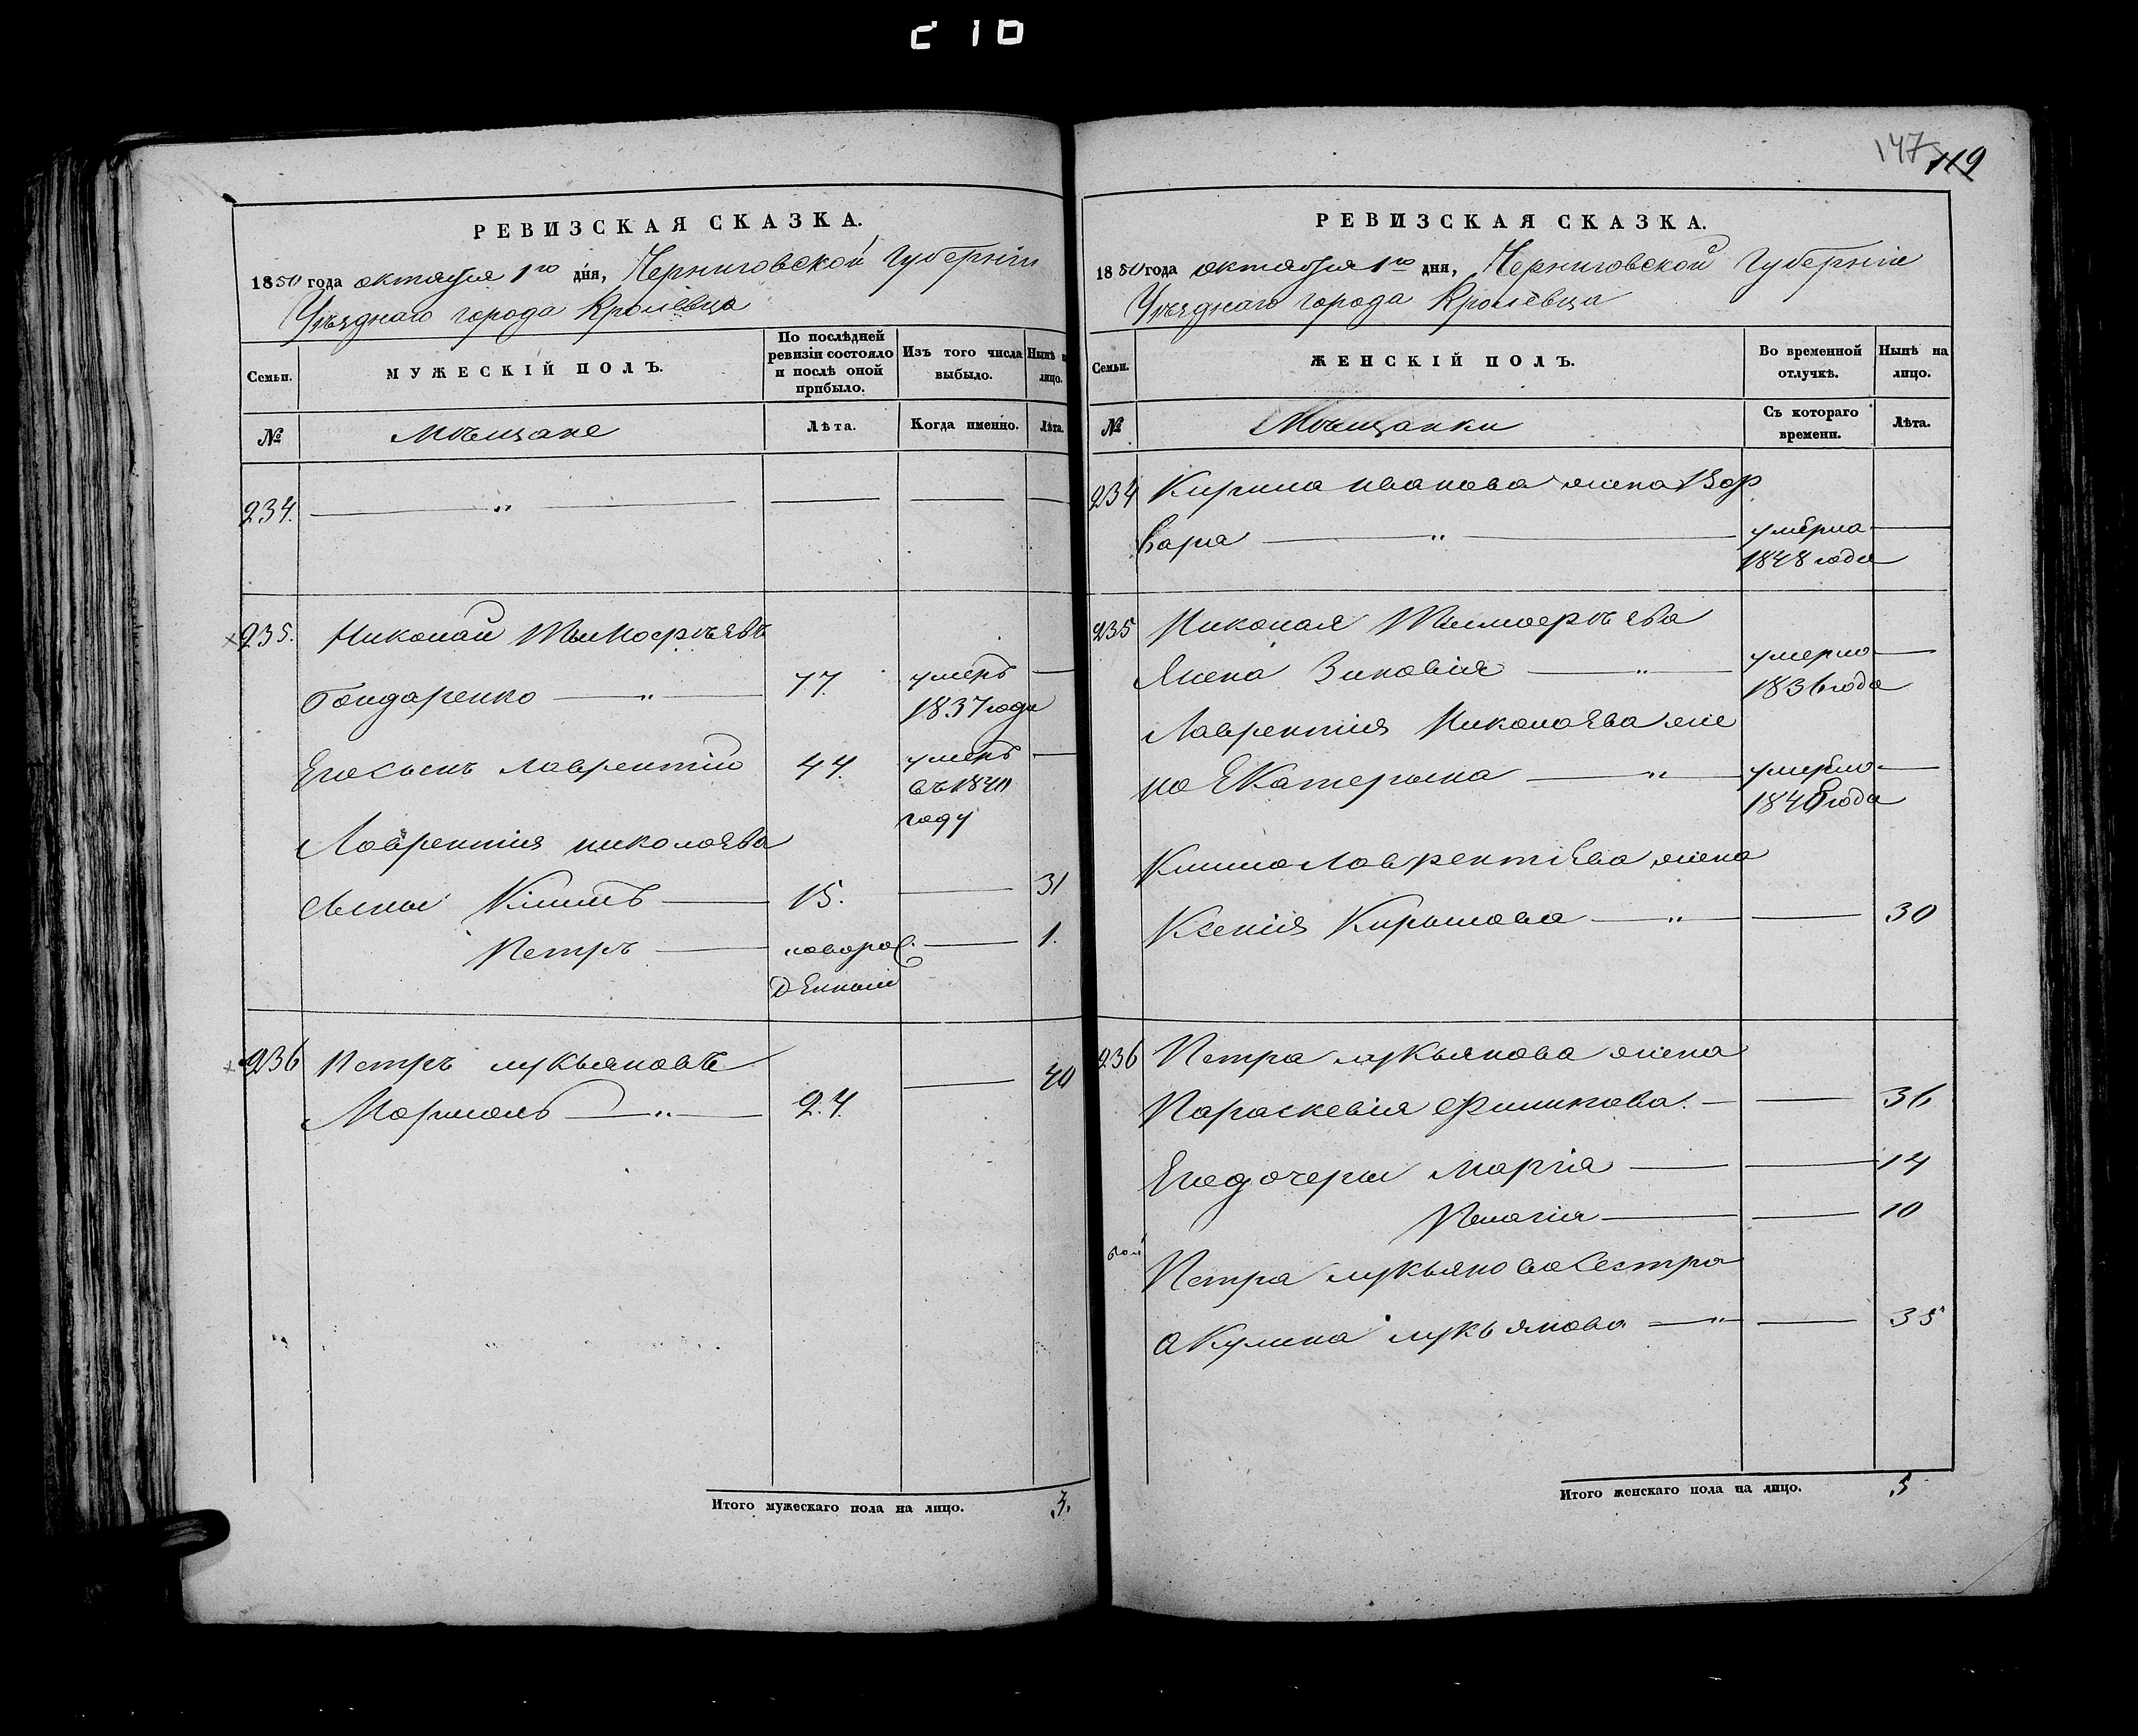 147 119
РЕВИЗСКАЯ СКАЗКА.
1850 года октября 1го дня, Черниговской Губерніи
Уѣзднаго города Кролевца
Семьи.
МУЖЕСКІЙ ПОЛЪ.
По послѣдней ревизіи состояло и послѣ оной прибыло.
Изъ того числа выбыло.
Нынѣ на лицо.
№
Мѣщане
Лѣта.
Когда именно.
Лѣта.
234.
235. Николай
Бондаренко 77. умеръ
1837 года
Его сынъ Лаврентій 44. умеръ
въ 1840
году
Лаврентія николаева
сыны Климъ 15. 31
Петръ новорож 1.
денный
236 Петръ лукьяновъ 40
24.
Итого мужескаго пола на лицо. 3.
РЕВИЗСКАЯ СКАЗКА.
1850 года октября 1го дня, Черниговской Губерніи
Уѣзднаго города Кролевца
Семьи.
ЖЕНСКІЙ ПОЛЪ.
Во временной отлучкѣ.
Нынѣ на лицо.
№
Мѣщанки
Съ котораго времени.
Лѣта.
234 Кирила иванова жена Вар
вара умерла
1848 года
235 Николая
Жена Зиновія умерла
1836 года
Лаврентія Николаева же
на Екатерына умерла
1840 года
Клима Лаврентіева жена
Ксенія Кирылова 30
236 Петра лукьянова жена
Параскевія Филипова. 36
Его дочеры Марія 14
Пелагія 10
Петра лукьянова Сестра
Акулина лукьянова 35
Итого женскаго пола на лицо. 5